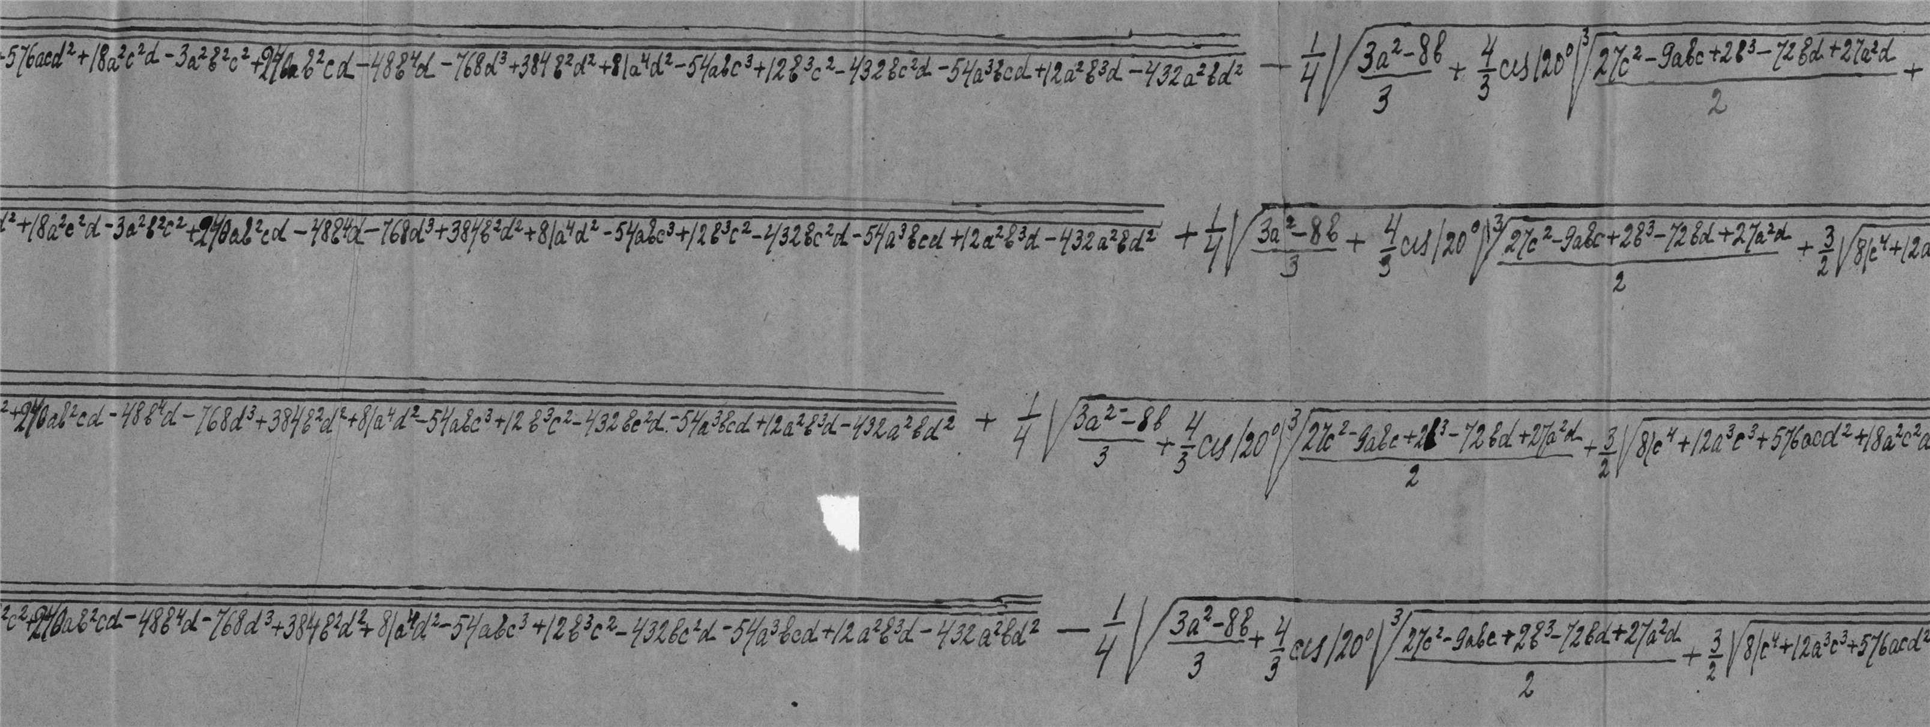 -576acd²+18a²c²d-3a²b²c²+240ab²cd-48b⁴d-768d³+384b²d²+81a⁴d²-54abc³+12b³c²-432bc²d-54a³bcd+12a²b³d-432a²bd² - 1/4√(3a²-8b)/3 + 4/3 cis120° ³√(27c²-9abc+2b³-72bd+27a²d)/2 +
d²+18a²c²d-3a²b²c²+240ab²cd-48b⁴d-768d³+384b²d²+81a⁴d²-54abc³+12b³c²-432bc²d-54a³bcd+12a²b³d-432a²bd² + 1/4√(3a²-8b)/3 + 4/3 cis120° ³√(27c²-9abc+2b³-72bd+27a²d)/2 + 3/2√81c⁴+12a
²+240ab²cd-48b⁴d-768d³+384b²d²+81a⁴d²-54abc³+12b³c²-432bc²d-54a³bcd+12a²b³d-432a²bd² + 1/4√(3a²-8b)/3 + 4/3 cis120° ³√(27c²-9abc+2b³-72bd+27a²d)/2 + 3/2√81c⁴+12a³c³+576acd²+18a²c²d
²c²+240ab²cd-48b⁴d-768d³+384b²d²+81a⁴d²-54abc³+12b³c²-432bc²d-54a³bcd+12a²b³d-432a²bd² - 1/4√(3a²-8b)/3 + 4/3 cis120° ³√(27c²-9abc+2b³-72bd+27a²d)/2 + 3/2√81c⁴+12a³c³+576acd²